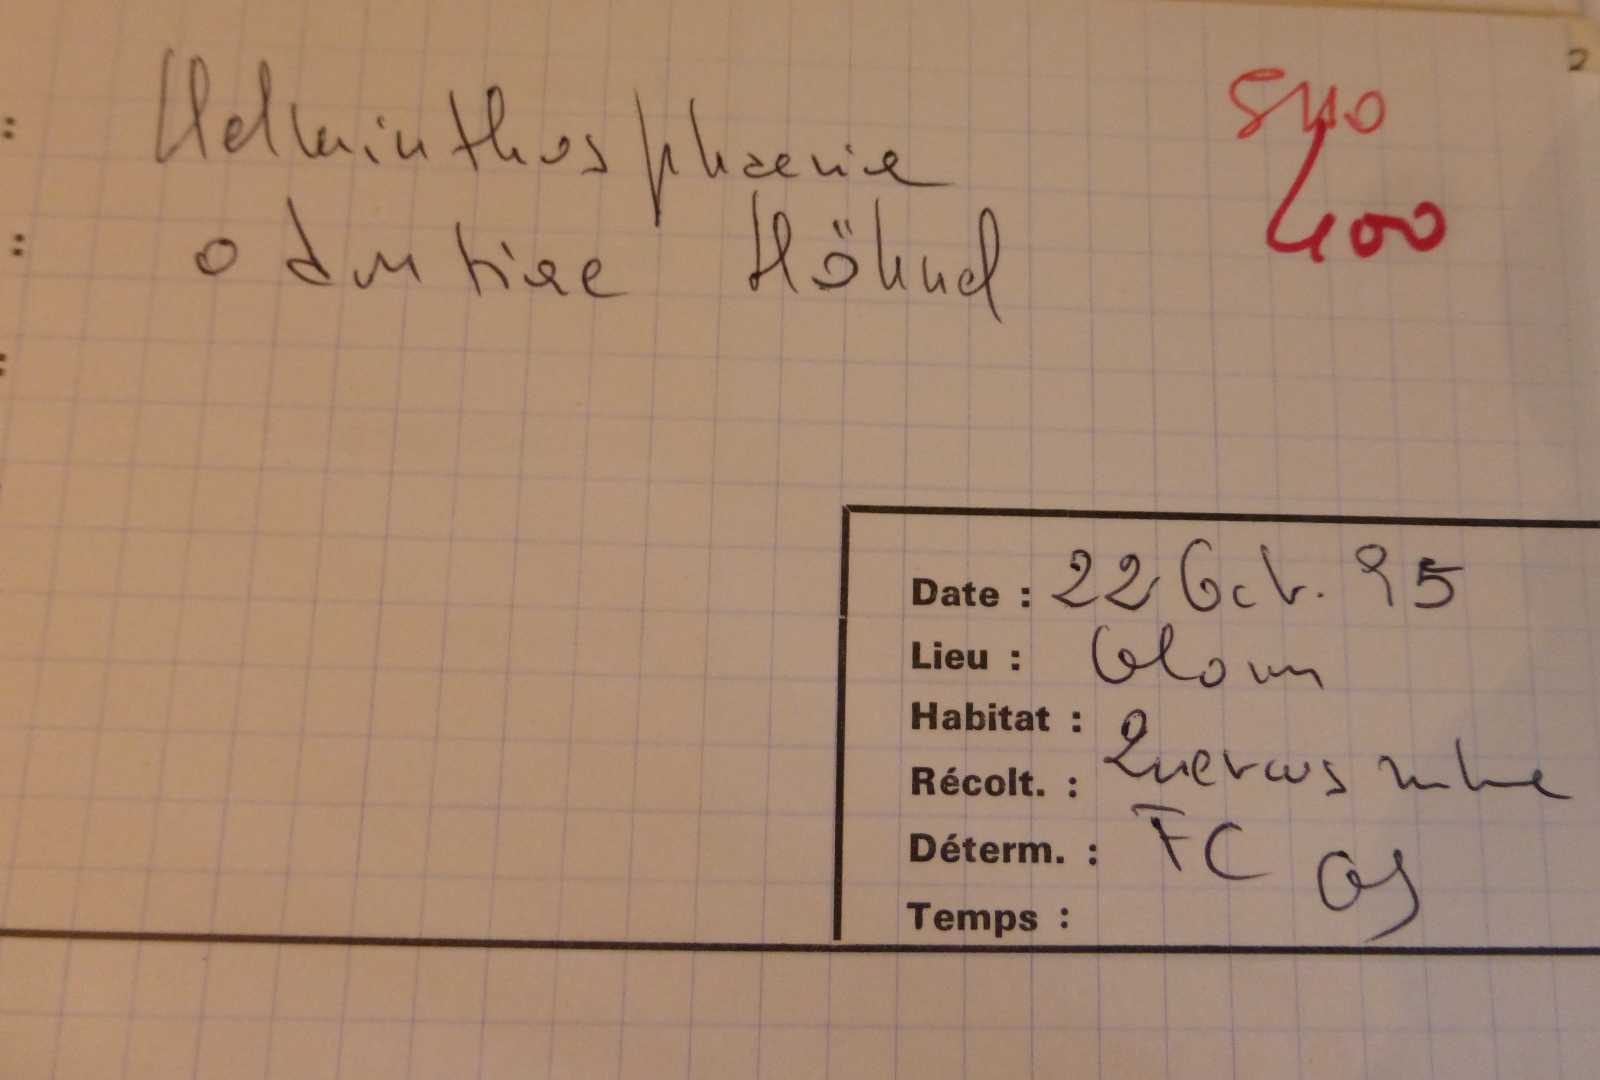 Helminthosphaeria
odontiae Höhnel
400
Date : 22 Oct. 95
Lieu : Olonn
Habitat :
Récolt. : Quercus rubra
Déterm. : FC
Temps :